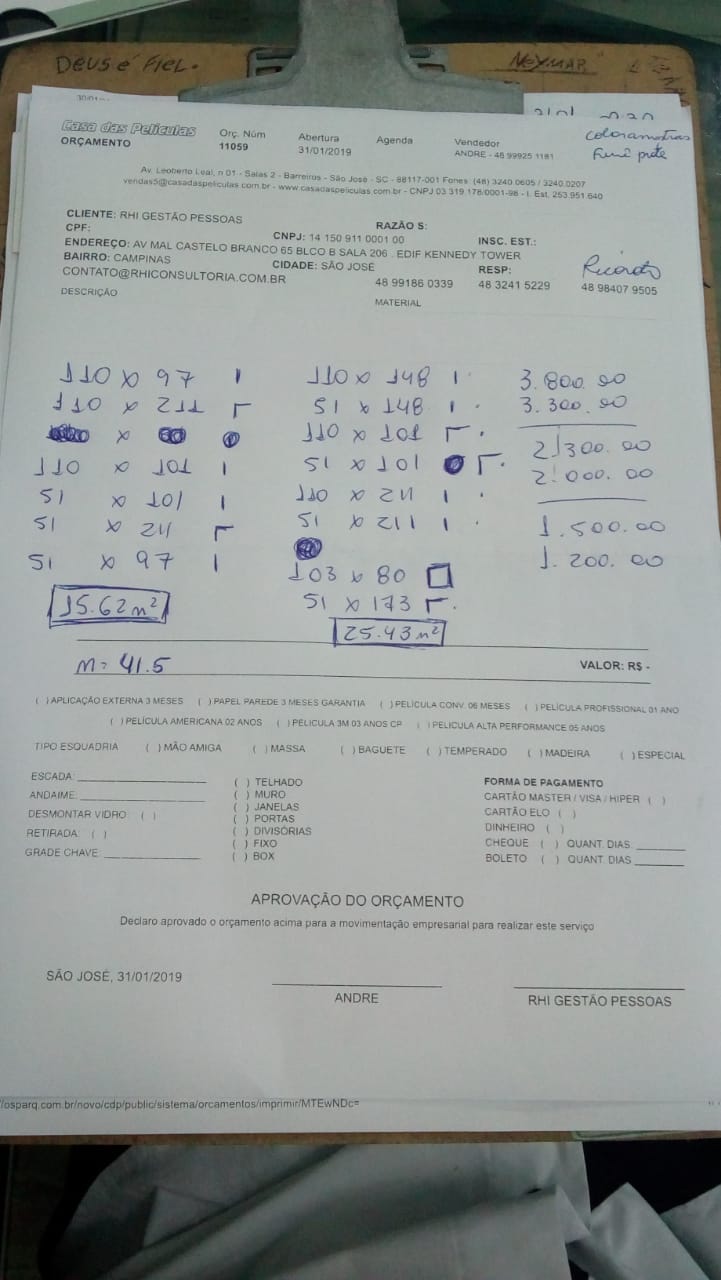 DEUS é FIEL.
NEYMAR
30/01
Casa das Películas
ORÇAMENTO
Orç. Núm
11059
Abertura
31/01/2019
Agenda
Vendedor
ANDRE - 48 99925 1181
Av. Leoberto Leal, n 01 - Salas 2 - Barreiros - São José - SC - 88117-001 Fones: (48) 3240 0605 / 3240.0207
vendas5@casadaspeliculas.com.br - www.casadaspeliculas.com.br - CNPJ 03 319.178/0001-98 - I. Est. 253.951.640
CLIENTE: RHI GESTÃO PESSOAS
RAZÃO S:
CPF:
CNPJ: 14 150 911 0001 00
INSC. EST.:
ENDEREÇO: AV MAL CASTELO BRANCO 65 BLCO B SALA 206 . EDIF KENNEDY TOWER
BAIRRO: CAMPINAS
CIDADE: SÃO JOSÉ
RESP:
Ricardo
CONTATO@RHICONSULTORIA.COM.BR
48 99186 0339
48 3241 5229
48 98407 9505
DESCRIÇÃO
MATERIAL
110 x 97 I
110 x 148 I
3.800.00
110 x 211 Γ
51 x 148 I
3.300.00
x
110 x 101 Γ
2.300.00
110 x 101 I
51 x 101 Γ
2.000.00
51 x 101 I
110 x 211 I
51 x 211 Γ
51 x 211 I
1.500.00
51 x 97 I
1.200.00
103 x 80 □
15.62m²
51 x 173 Γ
25.43m²
m= 41.5
VALOR: R$ -
( ) APLICAÇÃO EXTERNA 3 MESES ( ) PAPEL PAREDE 3 MESES GARANTIA ( ) PELÍCULA CONV. 06 MESES ( ) PELÍCULA PROFISSIONAL 01 ANO
( ) PELÍCULA AMERICANA 02 ANOS ( ) PELICULA 3M 03 ANOS CP ( ) PELICULA ALTA PERFORMANCE 05 ANOS
TIPO ESQUADRIA ( ) MÃO AMIGA ( ) MASSA ( ) BAGUETE ( ) TEMPERADO ( ) MADEIRA ( ) ESPECIAL
ESCADA:
ANDAIME:
DESMONTAR VIDRO: ( )
RETIRADA: ( )
GRADE CHAVE:
( ) TELHADO
( ) MURO
( ) JANELAS
( ) PORTAS
( ) DIVISÓRIAS
( ) FIXO
( ) BOX
FORMA DE PAGAMENTO
CARTÃO MASTER / VISA / HIPER ( )
CARTÃO ELO ( )
DINHEIRO ( )
CHEQUE ( ) QUANT. DIAS
BOLETO ( ) QUANT. DIAS
APROVAÇÃO DO ORÇAMENTO
Declaro aprovado o orçamento acima para a movimentação empresarial para realizar este serviço
SÃO JOSÉ, 31/01/2019
ANDRE
RHI GESTÃO PESSOAS
/osparq.com.br/novo/cdp/public/sistema/orcamentos/imprimir/MTEwNDc=